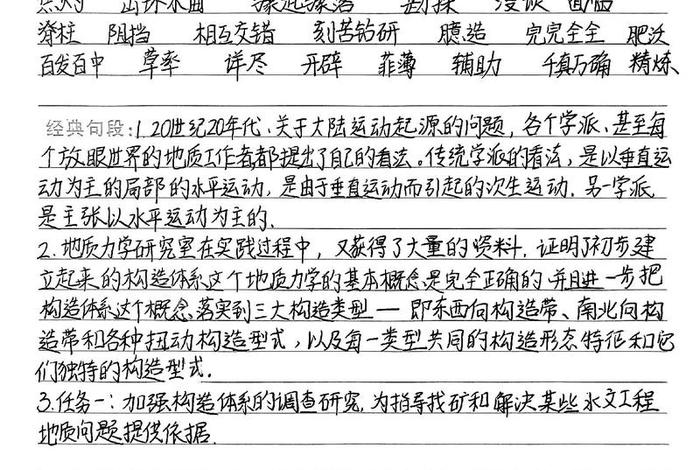 脊柱 阻挡 相互交错 刻苦钻研 臆造 完完全全 肥沃
百发百中 草率 详尽 开辟 菲薄 辅助 千真万确 精炼
经典句段:1.20世纪20年代、关于大陆运动起源的问题,各个学派、甚至每
个放眼世界的地质工作者都提出了自己的看法。传统学派的看法,是以垂直运
动为主的局部的水平运动,是由于垂直运动而引起的次生运动.另一学派
是主张以水平运动为主的.
2.地质力学研究室在实践过程中,又获得了大量的资料.证明了初步建
立起来的构造体系这个地质力学的基本概念是完全正确的.并且进一步把
构造体系这个概念落实到三大构造类型——即东西向构造带、南北向构
造带和各种扭动构造型式,以及每一类型共同的构造形态特征和它
们独特的构造型式.
3.任务一:加强构造体系的调查研究,为指导找矿和解决某些水文工程
地质问题提供依据.